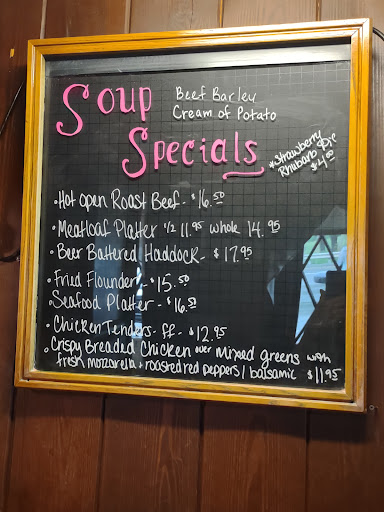 Soup
Beef Barley
Cream of Potato
Specials
*Strawberry
Rhubarb Pie
$4.00
• Hot open Roast Beef - $16.50
• Meatloaf Platter 1/2 11.95 whole 14.95
• Beer Battered Haddock - $17.95
• Fried Flounder - $15.50
• Seafood Platter - $16.50
• Chicken Tenders - ff - $12.95
• Crispy Breaded Chicken over mixed greens with
fresh mozzarella + roasted red peppers / balsamic $11.95